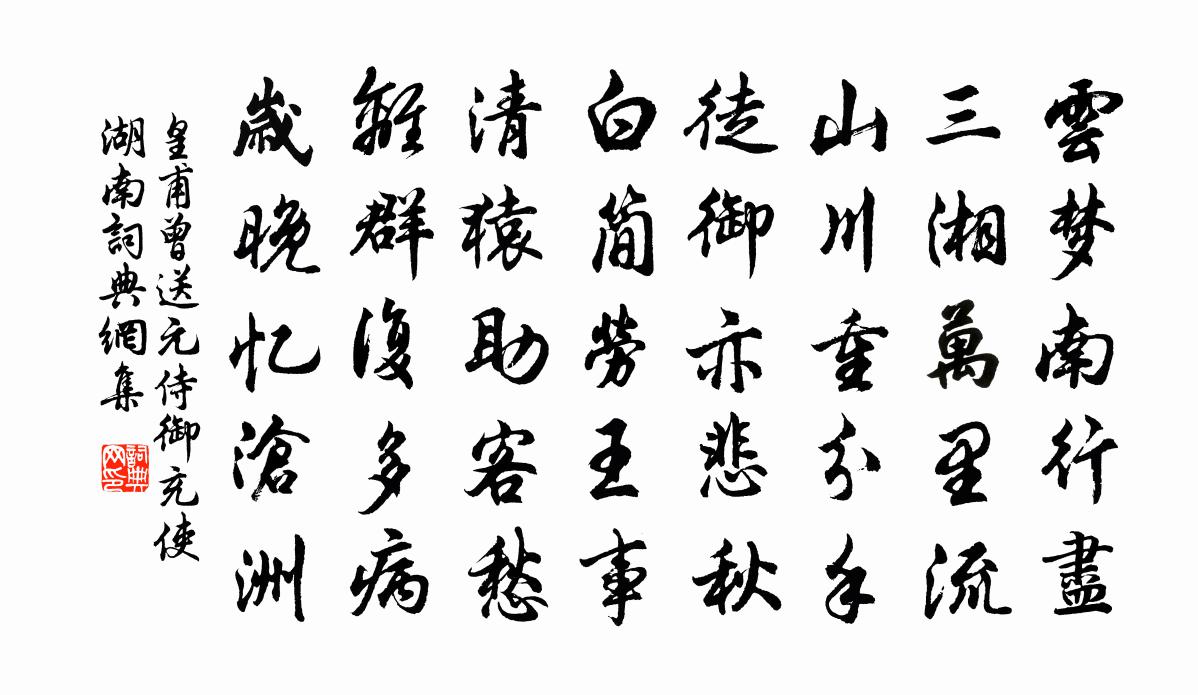 雲梦南行盡
三湘萬里流
山川重分手
徒御亦悲秋
白简勞王事
清猿助客愁
離群復多病
歲晚忆滄洲
皇甫曾送元侍御充使
湖南詞典網集
詞典网印